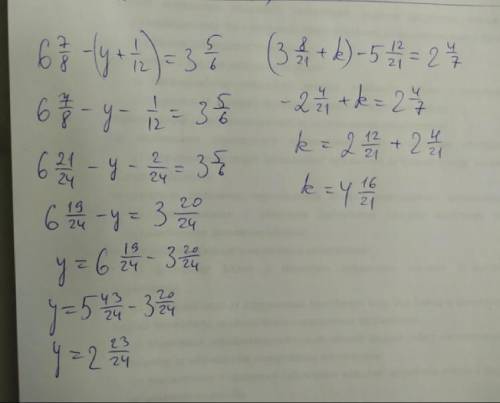 6 7/8 - (y + 1/12) = 3 5/6
6 7/8 - y - 1/12 = 3 5/6
6 21/24 - y - 2/24 = 3 5/6
6 19/24 - y = 3 20/24
y = 6 19/24 - 3 20/24
y = 5 43/24 - 3 20/24
y = 2 23/24
(3 8/21 + k) - 5 12/21 = 2 4/7
- 2 4/21 + k = 2 4/7
k = 2 12/21 + 2 4/21
k = 4 16/21